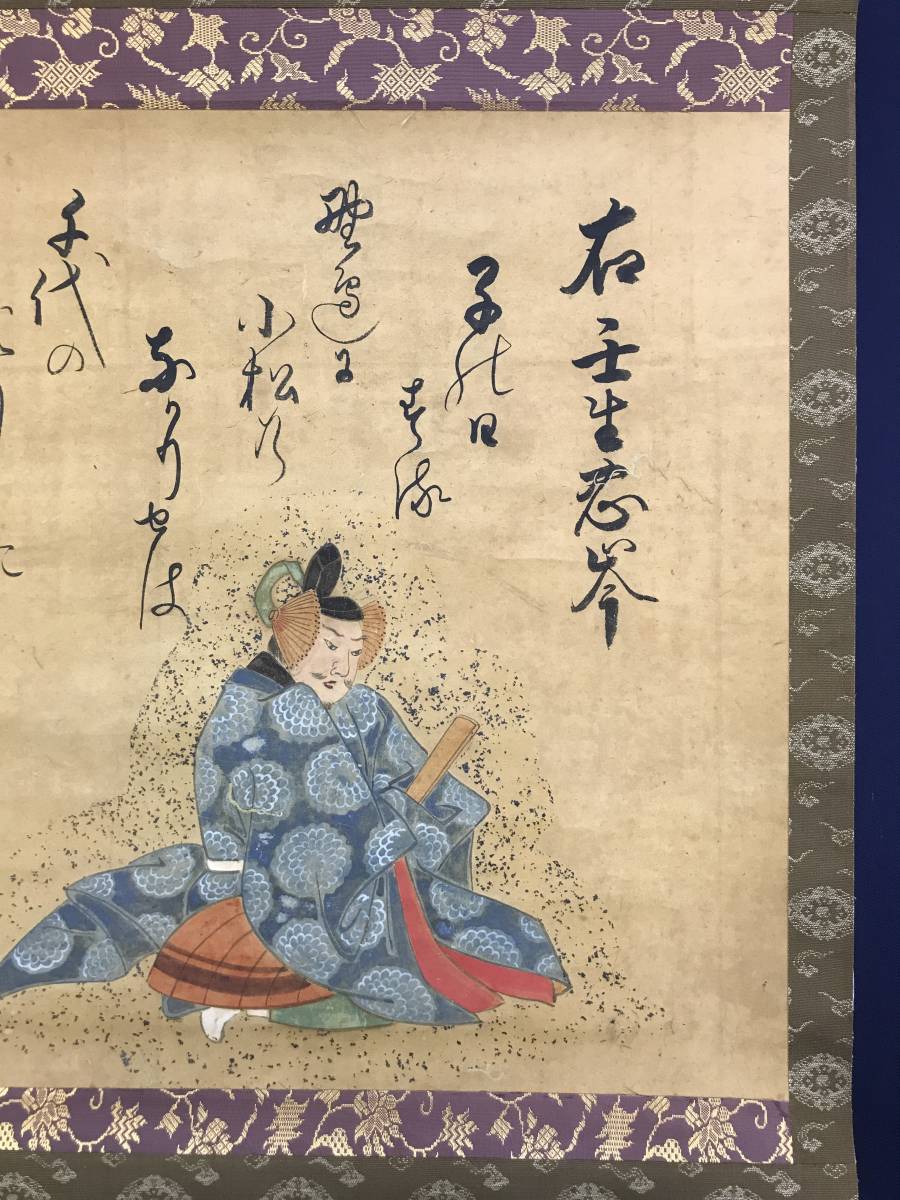 右 壬生忠岑
子の日
する
野邊に
小松の
なかりせは
千代の